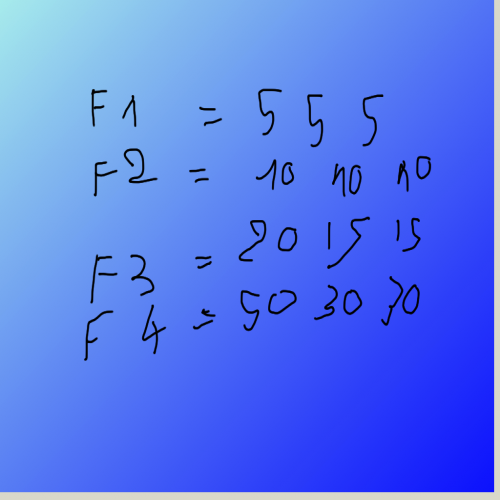 F1 = 5 5 5
F2 = 10 10 10
F3 = 20 15 15
F4 = 50 30 30